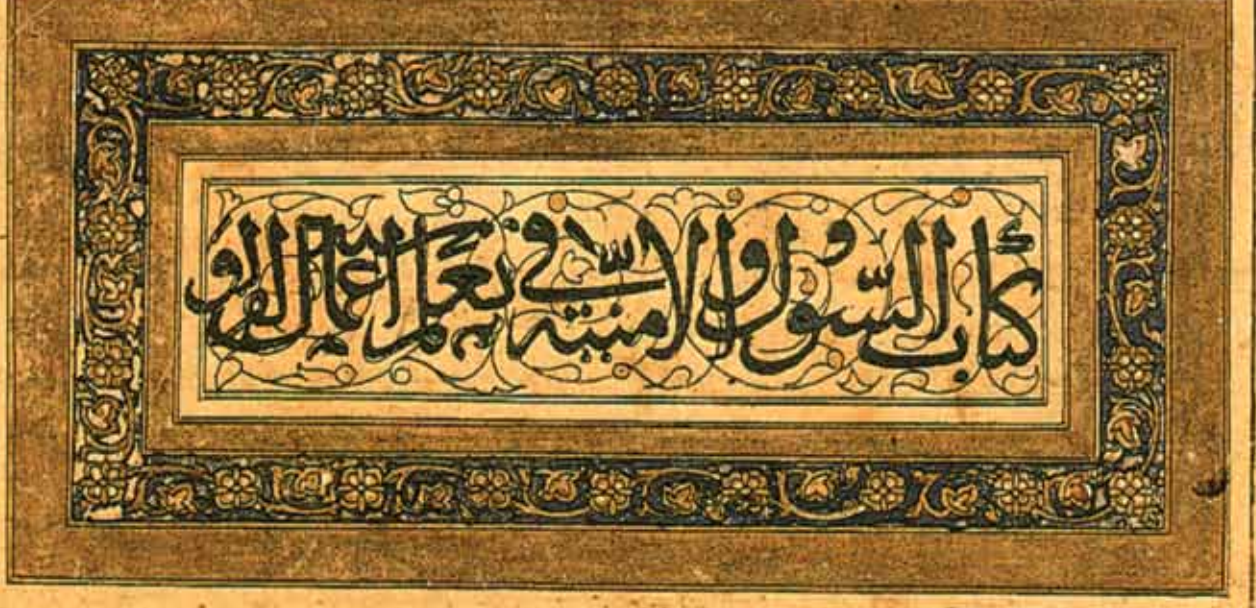 كتاب السّول والامنيه في تعلم اعمال الفرو